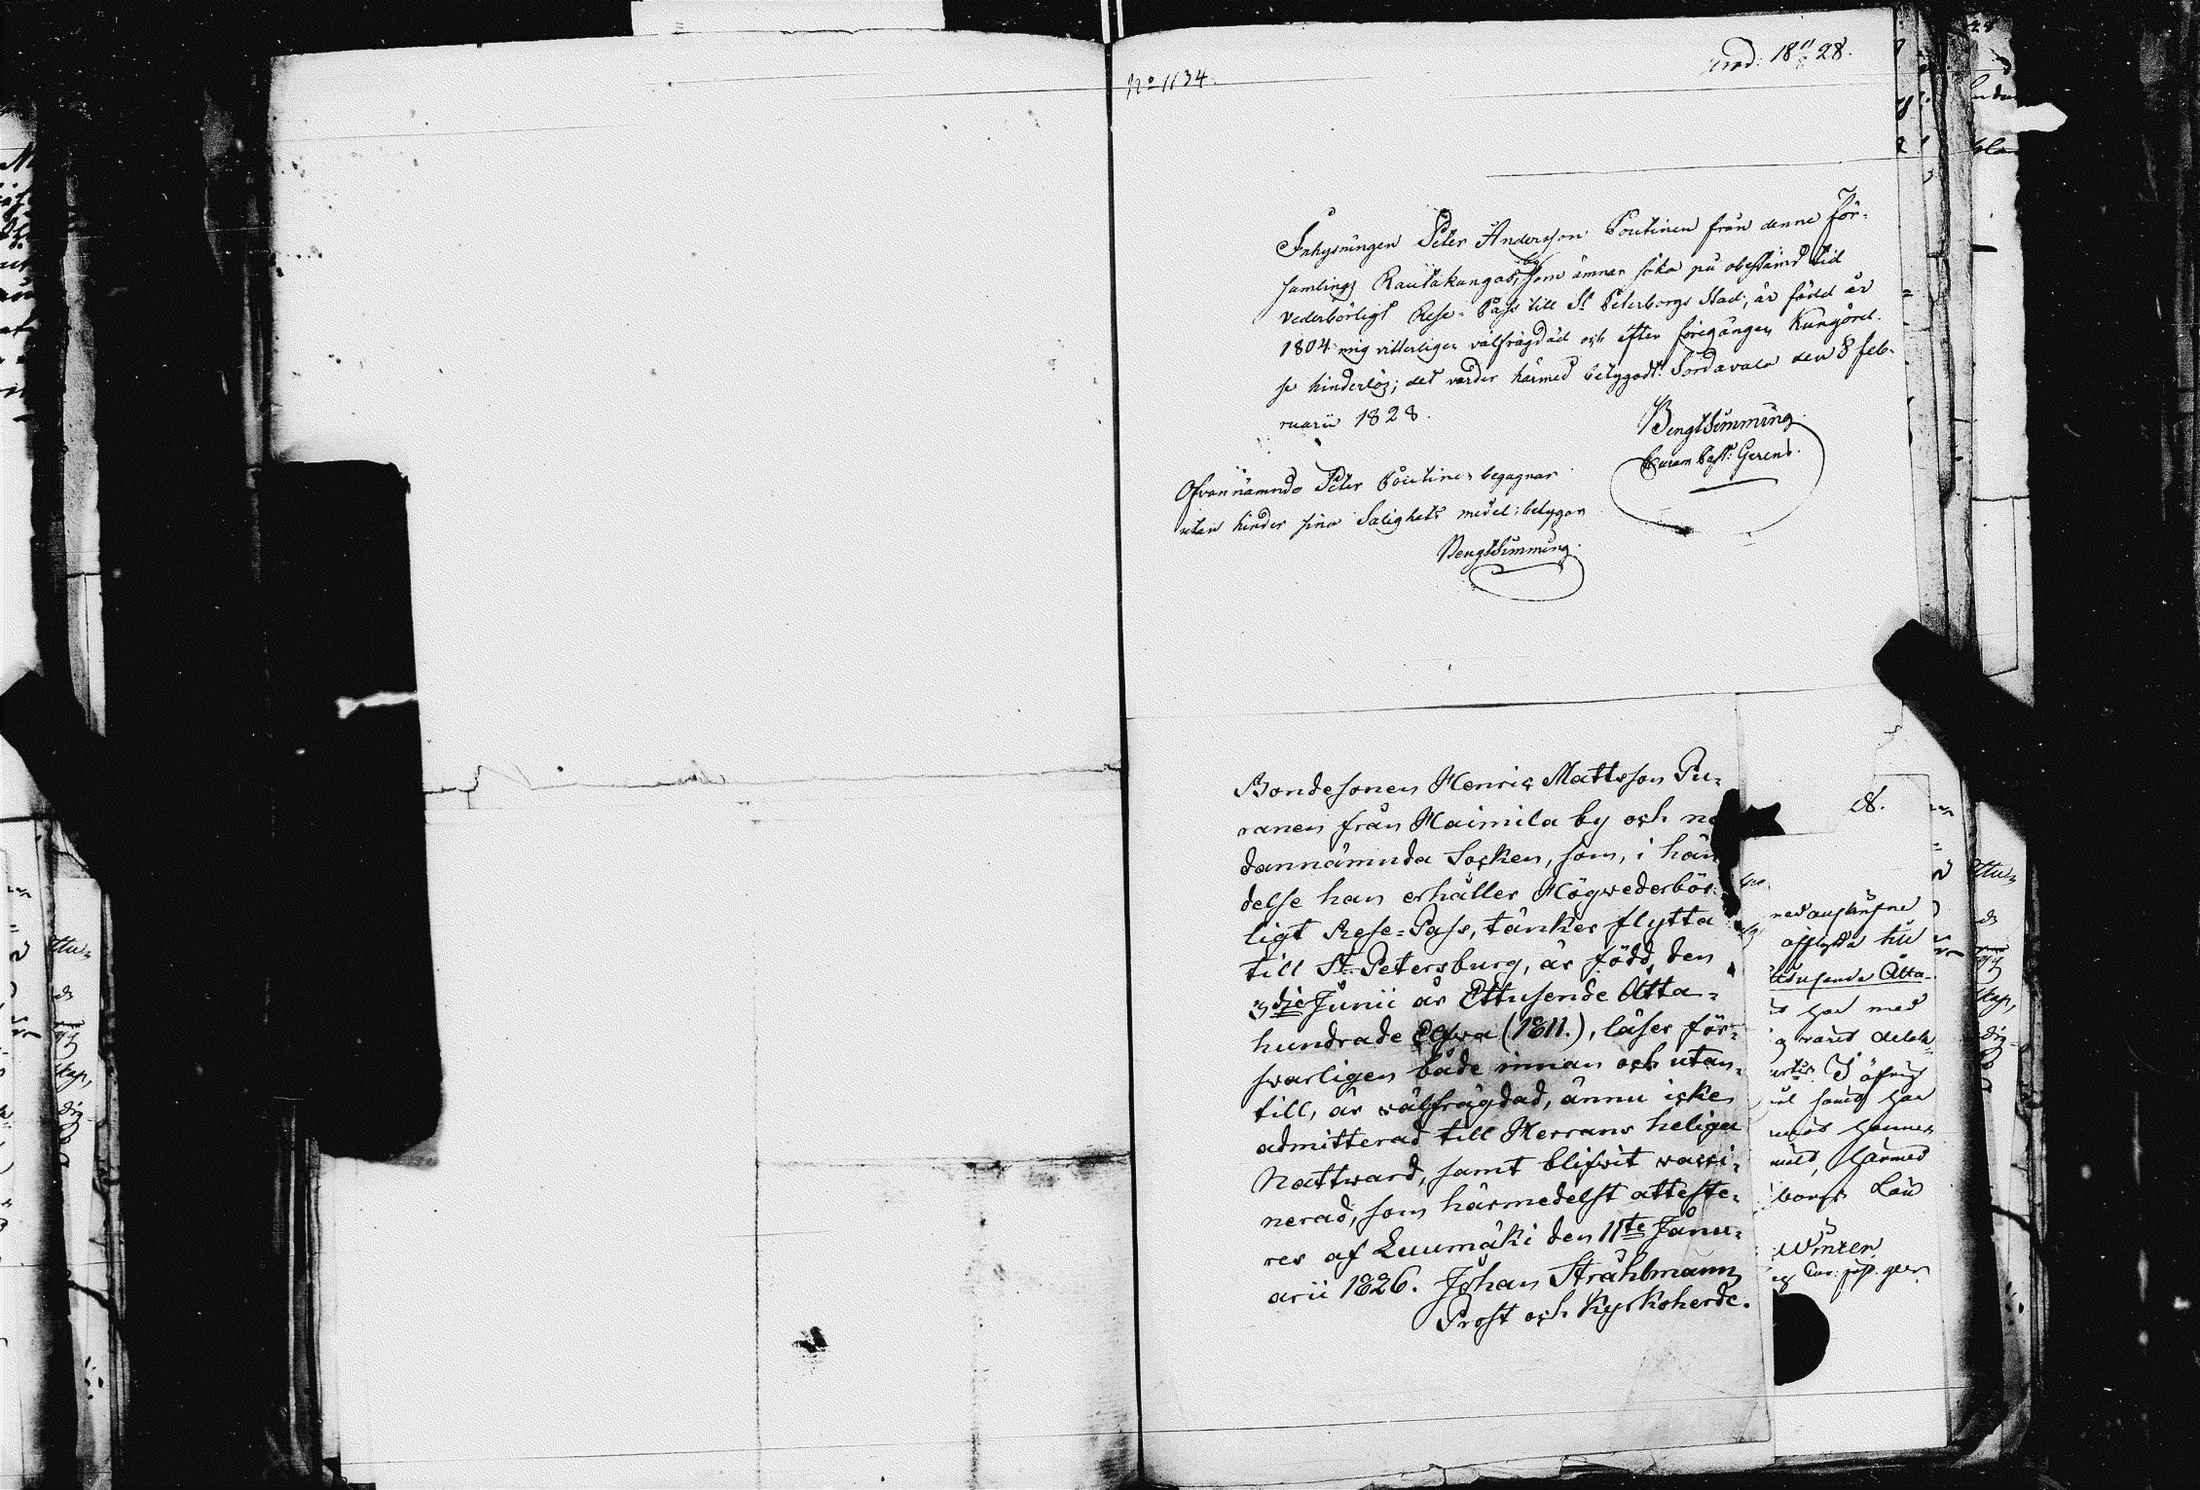 No 1134.
prod: 18 11/8 28.
Inhysningen Peter Andersson Poutinen från denne För-
samlings Rautakangas by, som ämnar söka på obestämd tid
vederbörligt Rese-Pass till St Peterborgs Stad, är född år
1804 mig vitterligen välfrägdad och efter föregången Kungörel-
se hinderlös; det varder härmed betygadt. Sordavala den 8 feb-
ruarii 1828.
Bengt Simming
Curam Past: Gerens.
Ofvannämnde Peter Poutinen begagnar
utan hinder sina Salighets medel; betygar
Bengt Simming.
Bondesonen Henric Mattsson Pu-
ranen från Haimila by och ne
dannämnda Socken, som, i hän
delse han erhåller Högwederbör-
ligt Rese-Pass, tänker flytta
till St. Petersburg, är född den
3die Junii år Ettusende Åtta-
hundrade Elfwa (1811.), läser för-
swarligen både innan och utan-
till, är wälfrägdad, ännu icke
admitterad till Herrans heliga
Nattward, samt blifwit vacci-
nerad, som härmedelst atteste-
res af Luumäki den 11te Janu-
arii 1826. Johan Stråhlmann
Prost och Kyrkoherde.
28.
afflytta till
Ettusende Åtta-
har med
härmed
borgs Län
Winter